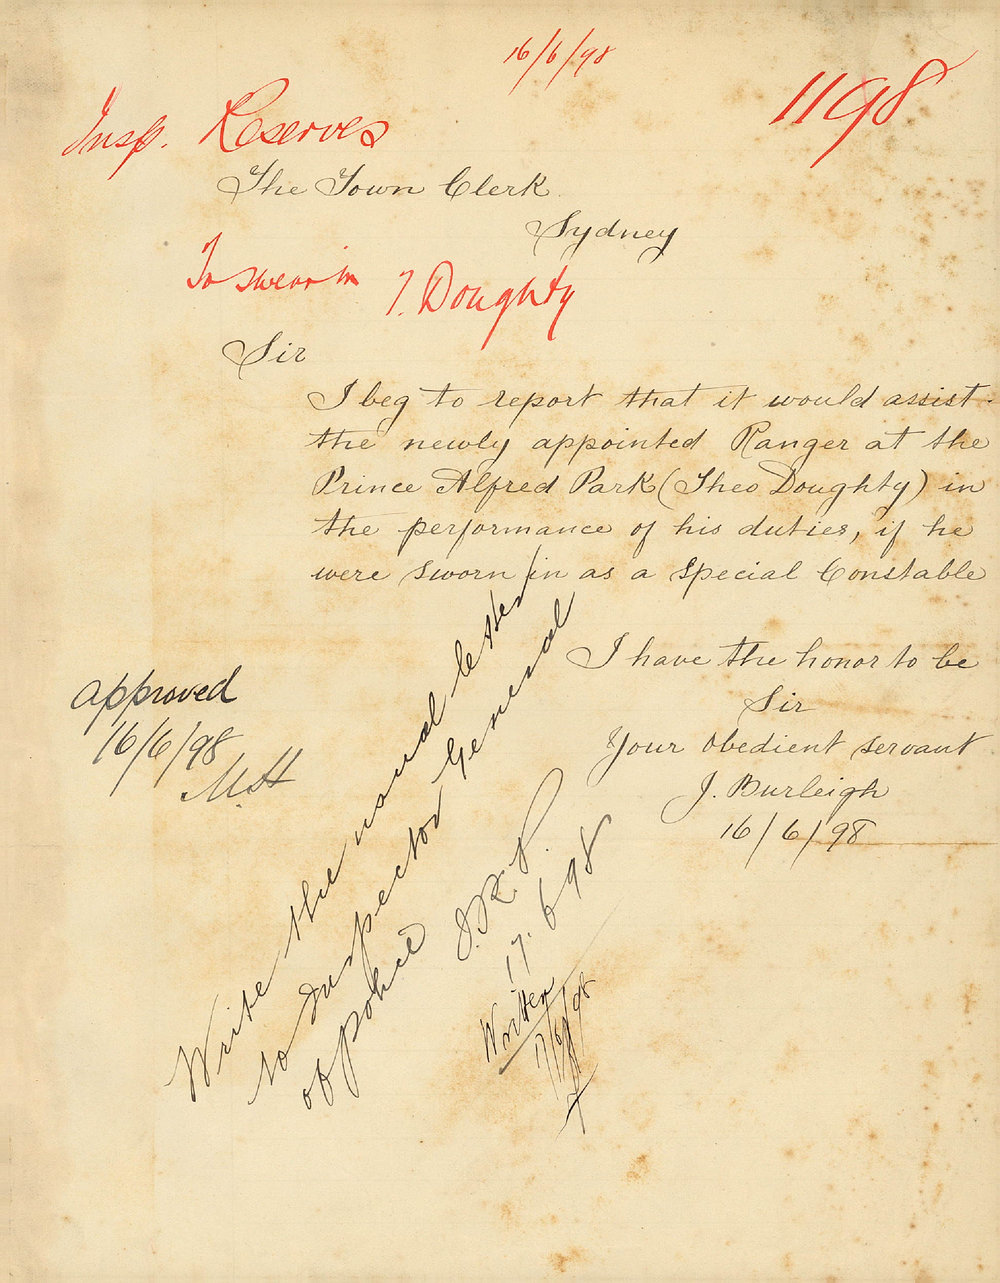 16/6/98
1198
Insp. Reserves
The Town Clerk
Sydney
To swear in T. Doughty
Sir
I beg to report that it would assist
the newly appointed Ranger at the
Prince Alfred Park (Theo Doughty) in
the performance of his duties, if he
were sworn in as a Special Constable
I have the honor to be
Sir
Your obedient servant
J. Burleigh
16/6/98
approved
16/6/98
Write the usual letter
to Inspector General
of police
17.6.98
Written
17/6/98